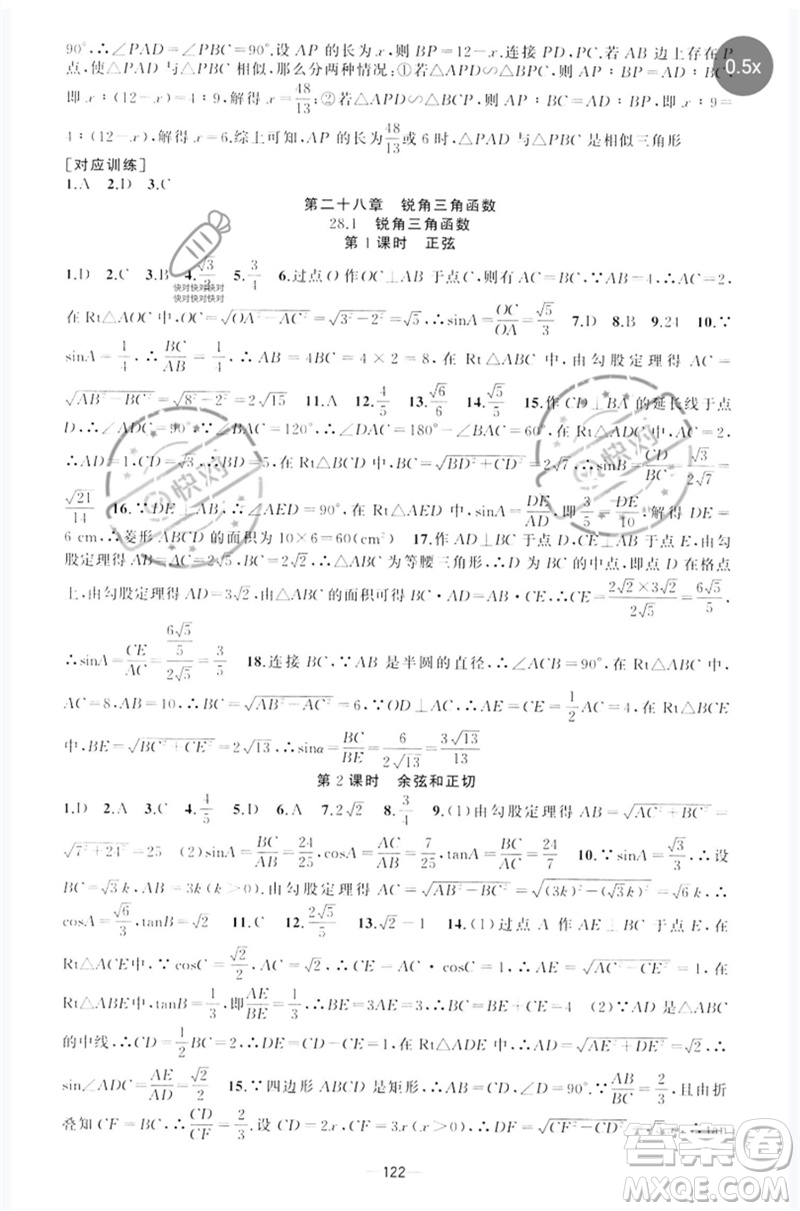 90°.∴∠PAD=∠PBC=90°.设 AP 的长为 x,则 BP=12-x.连接 PC.若 AB 边上存在 P
0.5x
点,使△PAD 与△PBC 相似,那么分两种情况:①若△APD∽△BPC,则 AP∶BP=AD∶BC,
即 x∶(12-x)=4∶9,解得 x=48/13;②若△APD∽△BCP,则 AP∶BC=AD∶BP,即 x∶9=
4∶(12-x),解得 x=6.综上可知,AP 的长为48/13或 6 时,△PAD 与△PBC 是相似三角形
[对应训练]
1.A 2.D 3.C
第二十八章 锐角三角函数
28.1 锐角三角函数
第 1 课时 正弦
1.D 2.C 3.B 4.√3/2 5.3/4 6.过点 O 作OC⊥AB 于点C,则有 AC=BC.∵AB=4,∴AC=2,
快对快对快对
快对快对快对
在 Rt△AOC 中,OC=√(OA²-AC²)=√(3²-2²)=√5,∴sinA=OC/OA=√5/3 7.D 8.B 9.24 10.∵
sinA=1/4,∴BC/AB=1/4,∴AB=4BC=4×2=8,在 Rt△ABC 中,由勾股定理得 AC=
√(AB²-BC²)=√(8²-2²)=2√15 11.A 12.4/5 13.√6/6 14.√5/5 15.作 CD⊥BA 的延长线于点
D,∴∠ADC=90°.∵∠BAC=120°,∴∠DAC=180°-∠BAC=60°,在 Rt△ADC 中,AC=2,
∴AD=1,CD=√3,∴BD=5,在 Rt△BCD 中,BC=√(BD²+CD²)=2√7,∴sinB=CD/BC=√3/2√7=
√21/14 16.∵DE⊥AB,∴∠AED=90°,在 Rt△AED 中,sinA=DE/AD,即3/5=DE/10,解得 DE=
6 cm,∴菱形 ABCD 的面积为 10×6=60(cm²) 17.作 AD⊥BC 于点 D,CE⊥AB 于点 E,由勾
股定理得 AB=AC=2√5,BC=2√2,∴△ABC 为等腰三角形,∴D 为 BC 的中点,即点 D 在格点
上,由勾股定理得 AD=3√2,由△ABC 的面积可得 BC·AD=AB·CE,∴CE=2√2×3√2/2√5=6√5/5.
∴sinA=CE/AC=(6√5/5)/2√5=3/5 18.连接 BC,∵AB 是半圆的直径,∴∠ACB=90°,在 Rt△ABC 中,
AC=8,AB=10,∴BC=√(AB²-AC²)=6,∵OD⊥AC,∴AE=CE=1/2AC=4,在 Rt△BCE
中,BE=√(BC²+CE²)=2√13,∴sinα=BC/BE=6/2√13=3√13/13
第 2 课时 余弦和正切
1.D 2.A 3.4/5 4.B 5.D 6.A 7.2√2 8.3/4 9.(1)由勾股定理得 AB=√(AC²+BC²)=
√(7²+24²)=25 (2)sinA=BC/AB=24/25,cosA=AC/AB=7/25,tanA=BC/AC=24/7 10.∵sinA=√3/3,∴设
BC=√3k,AB=3k(k>0),由勾股定理得 AC=√(AB²-BC²)=√((3k)²-(√3k)²)=√6k,∴
cosA=√6/3,tanB=√2 11.C 12.2√5/5 13.√2-1 14.(1)过点 A 作 AE⊥BC 于点 E,在
Rt△ACE 中,∵cosC=√2/2,∴∠C=45°,∴CE=AC·cosC=1,∴AE=CE=1,在
Rt△ABE 中,tanB=1/3,即AE/BE=1/3,∴BE=3AE=3,∴BC=BE+CE=4 (2)∵AD 是△ABC
的中线,∴CD=1/2BC=2,∴DE=CD-CE=1,在 Rt△ADE 中,AD=√(AE²+DE²)=√2,∴
sin∠ADC=AE/AD=√2/2 15.∵四边形 ABCD 是矩形,∴AB=CD,∠D=90°,∵AB/BC=2/3,且由折
叠知 CF=BC,∴CD/CF=2/3.设 CD=2x,CF=3x(x>0),∴DF=√(CF²-CD²)=√5x.∴tan
122
快对
答案卷
MXQE.COM